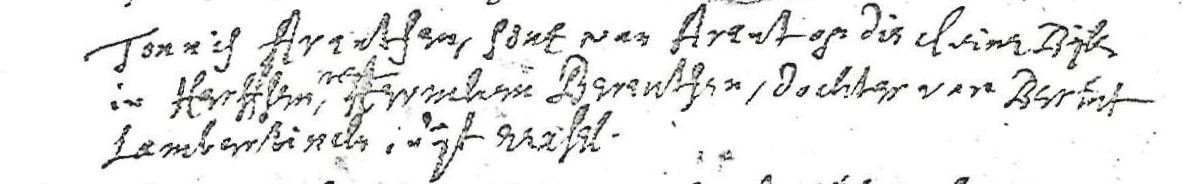 Tonnis Arentsen, sone van Arent op die cleine Bijle
in Harffsen, met Hermken Berentsen, dochter van Berent
Lamberdinck, uijt